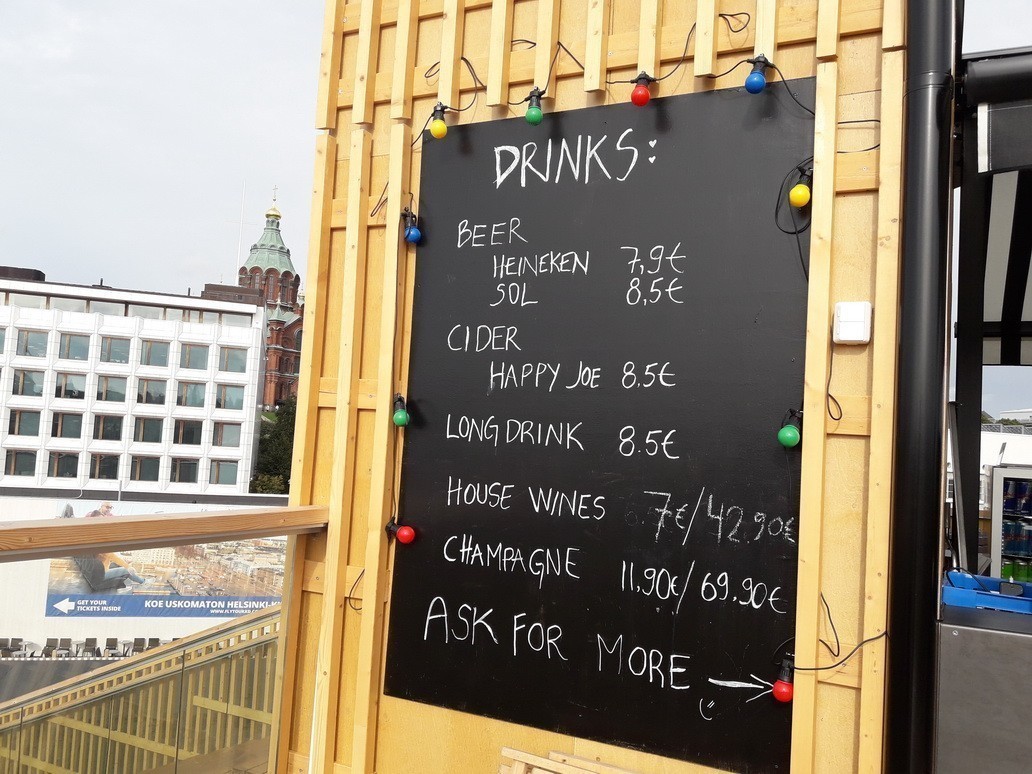 DRINKS:
BEER
HEINEKEN 7,9€
SOL 8,5€
CIDER
HAPPY JOE 8.5€
LONG DRINK 8.5€
HOUSE WINES 7€/42.90€
CHAMPAGNE 11,90€/69.90€
ASK FOR MORE →
GET YOUR
TICKETS INSIDE
KOE USKOMATON HELSINKI